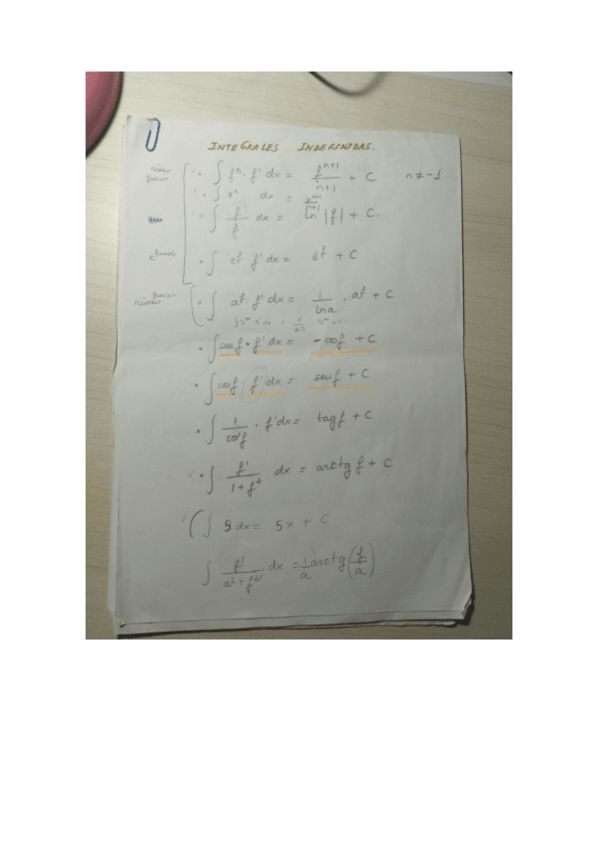 INTEGRALES INDEFINIDAS.
• ∫ fⁿ · f' dx = fⁿ⁺¹/n+1 + C n ≠ -1
• ∫ xⁿ dx = xⁿ⁺¹/n+1
• ∫ f'/f dx = Ln |f| + C.
• ∫ eᶠ f' dx = eᶠ + C
• ∫ aᶠ · f' dx = 1/lna · aᶠ + C
• ∫ senf · f' dx = - cosf + C
• ∫ cosf f' dx = senf + C
• ∫ 1/cos²f · f' dx = tagf + C
• ∫ f'/1+f² dx = arctg f + C
∫ 5 dx = 5x + C
∫ f'/a²+f² dx = 1/a arctg (f/a)